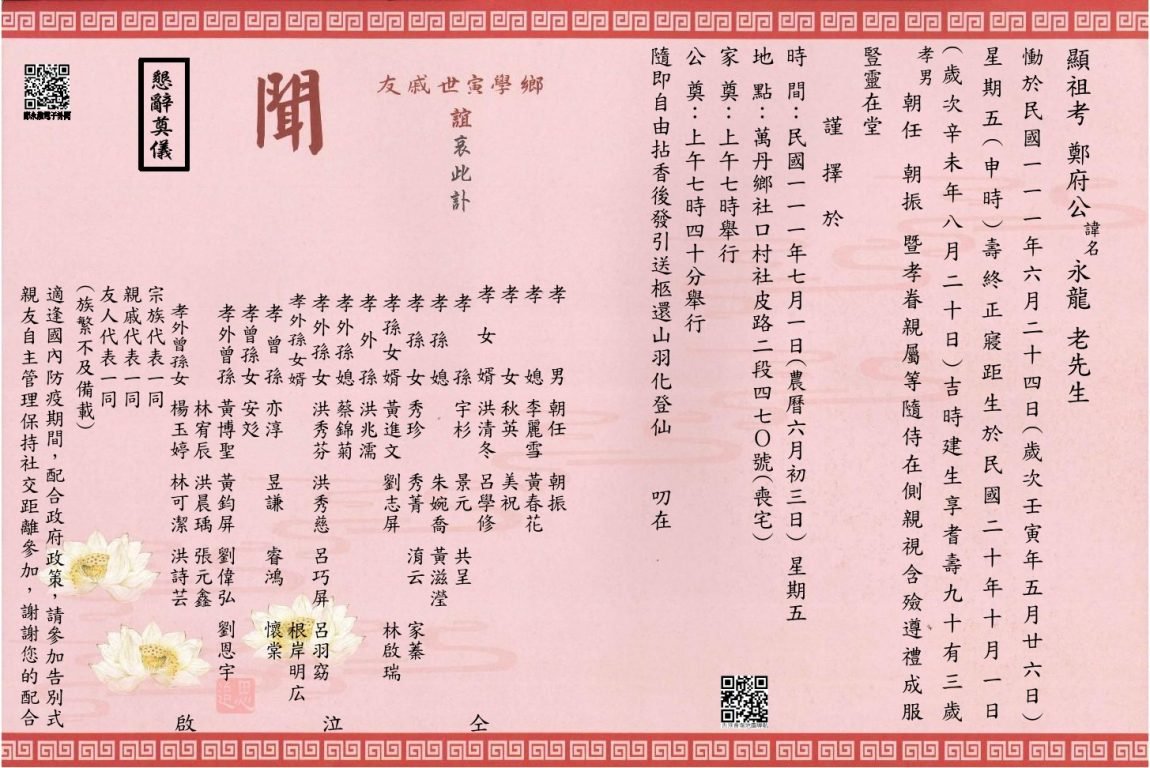 顯祖考 鄭府公諱名永龍 老先生
慟於民國一一一年六月二十四日(歲次壬寅年五月廿六日)
星期五(申時)壽終正寢距生於民國二十年十月一日
(歲次辛未年八月二十日)吉時建生享耆壽九十有三歲
孝男 朝任 朝振 暨孝眷親屬等隨侍在側親視含殮遵禮成服
豎靈在堂
謹擇於
時間:民國一一一年七月一日(農曆六月初三日)星期五
地點:萬丹鄉社口村社皮路二段四七〇號(喪宅)
家奠:上午七時舉行
公奠:上午七時四十分舉行
隨即自由拈香後發引送柩還山羽化登仙 叨在
鄉學寅世戚友
誼哀此訃
聞
懇辭奠儀
孝男 朝任 朝振
孝媳 李麗雪 黃春花
孝女 秋英 美祝
孝女婿 洪清冬 呂學修
孝孫 宇杉 景元 共呈
孝孫媳 朱婉喬 黃滋瀅
孝孫女 秀珍 秀菁 淯云 家蓁
孝孫女婿 黃進文 劉志屏 林啟瑞
孝外孫 洪兆濡
孝外孫媳 蔡錦菊
孝外孫女 洪秀芬 洪秀慈 呂巧屏 呂羽窈
孝外孫女婿 根岸明広
孝曾孫 亦淳 昱謙 睿鴻 懷棠
孝曾孫女 安彣
孝外曾孫 黃博聖 黃鈞屏 劉偉弘 劉恩宇
林宥辰 洪晨瑀 張元鑫
孝外曾孫女 楊玉婷 林可潔 洪詩芸
仝
泣
啟
宗族代表一同
親戚代表一同
友人代表一同
(族繁不及備載)
適逢國內防疫期間,配合政府政策,請參加告別式
親友自主管理保持社交距離參加,謝謝您的配合
追思